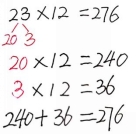 23 × 12 = 276
20 3
20 × 12 = 240
3 × 12 = 36
240 + 36 = 276